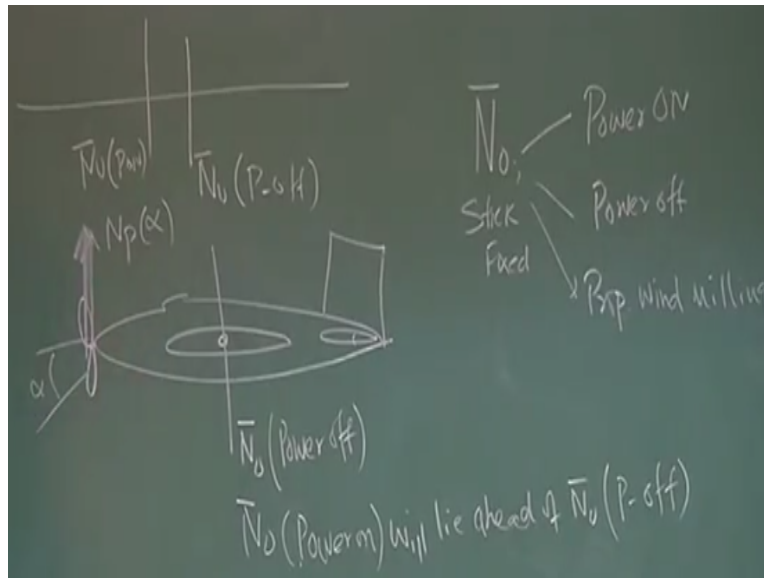 N̄₀(Pow)
N̄₀(P-off)
Np(α)
α
N̄₀(Power off)
N̄₀(Power on) will lie ahead of N̄₀(P-off)
N̄₀;
Stick
Fixed
Power ON
Power off
Prop. Wind milling